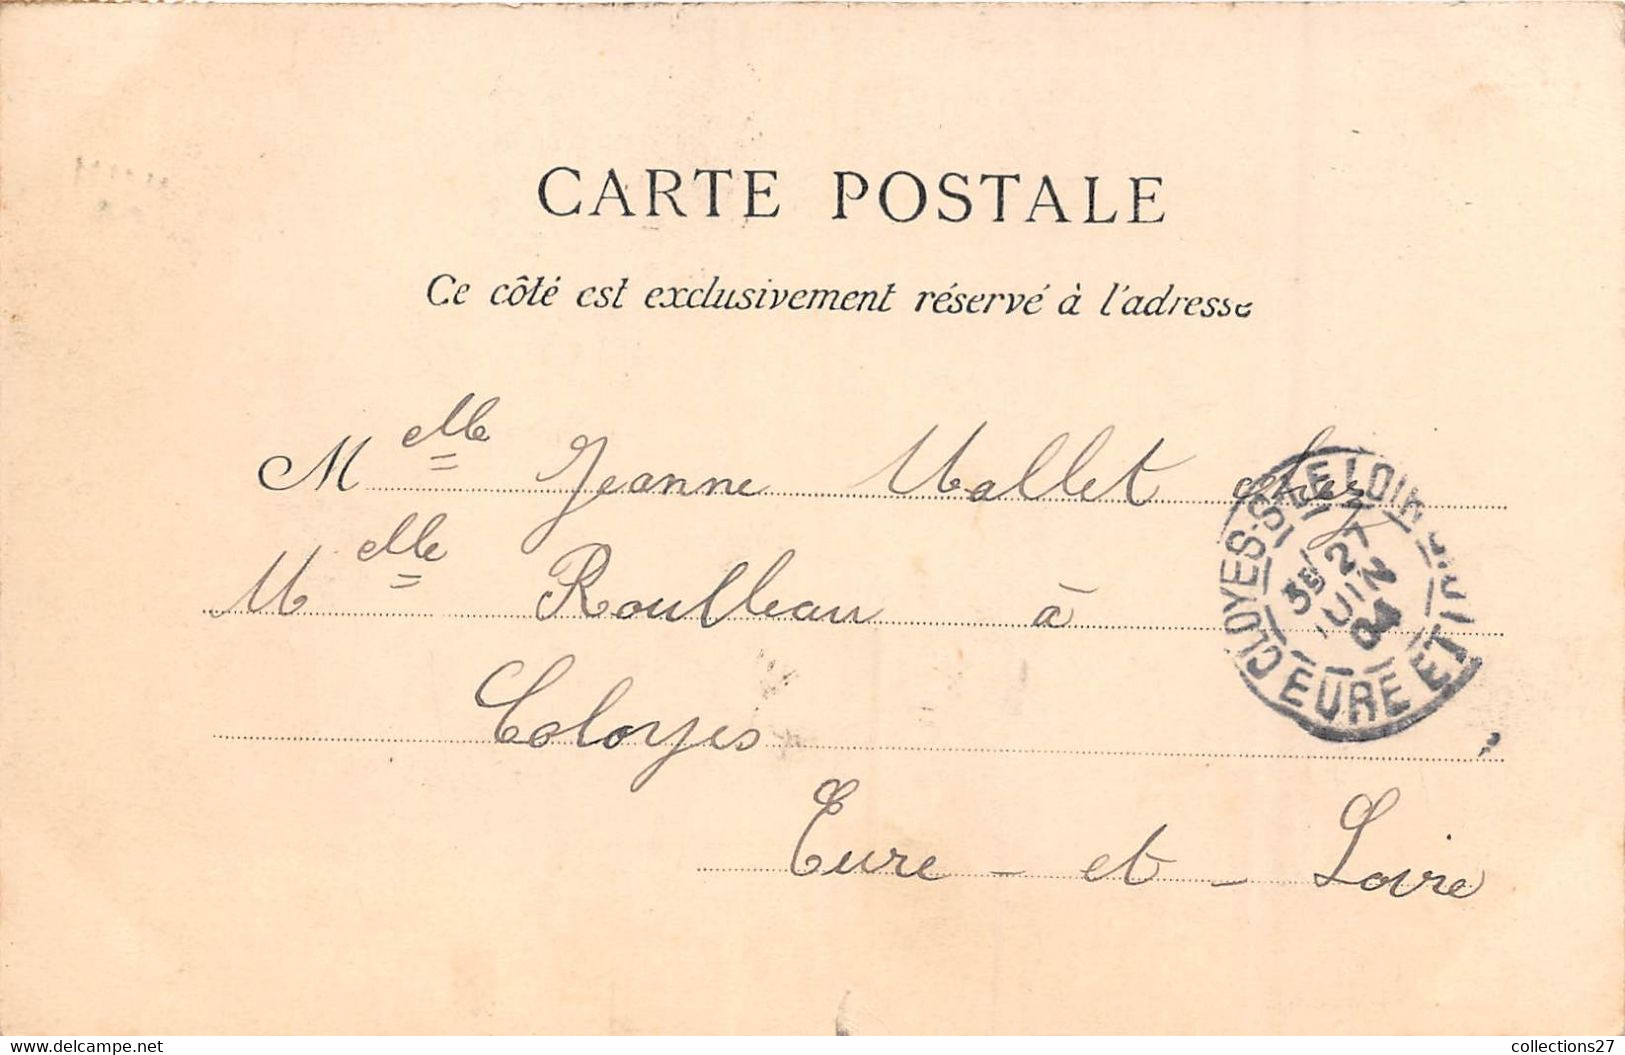 CARTE POSTALE
Ce côté est exclusivement réservé à l'adresse
Melle Jeanne Mallet chez
Melle Roulleau à
Cloyes
Eure - et - Loire
CLOYES-S-LE LOIR EURE ET
3E 27
JUIN
www.delcampe.net
collections27